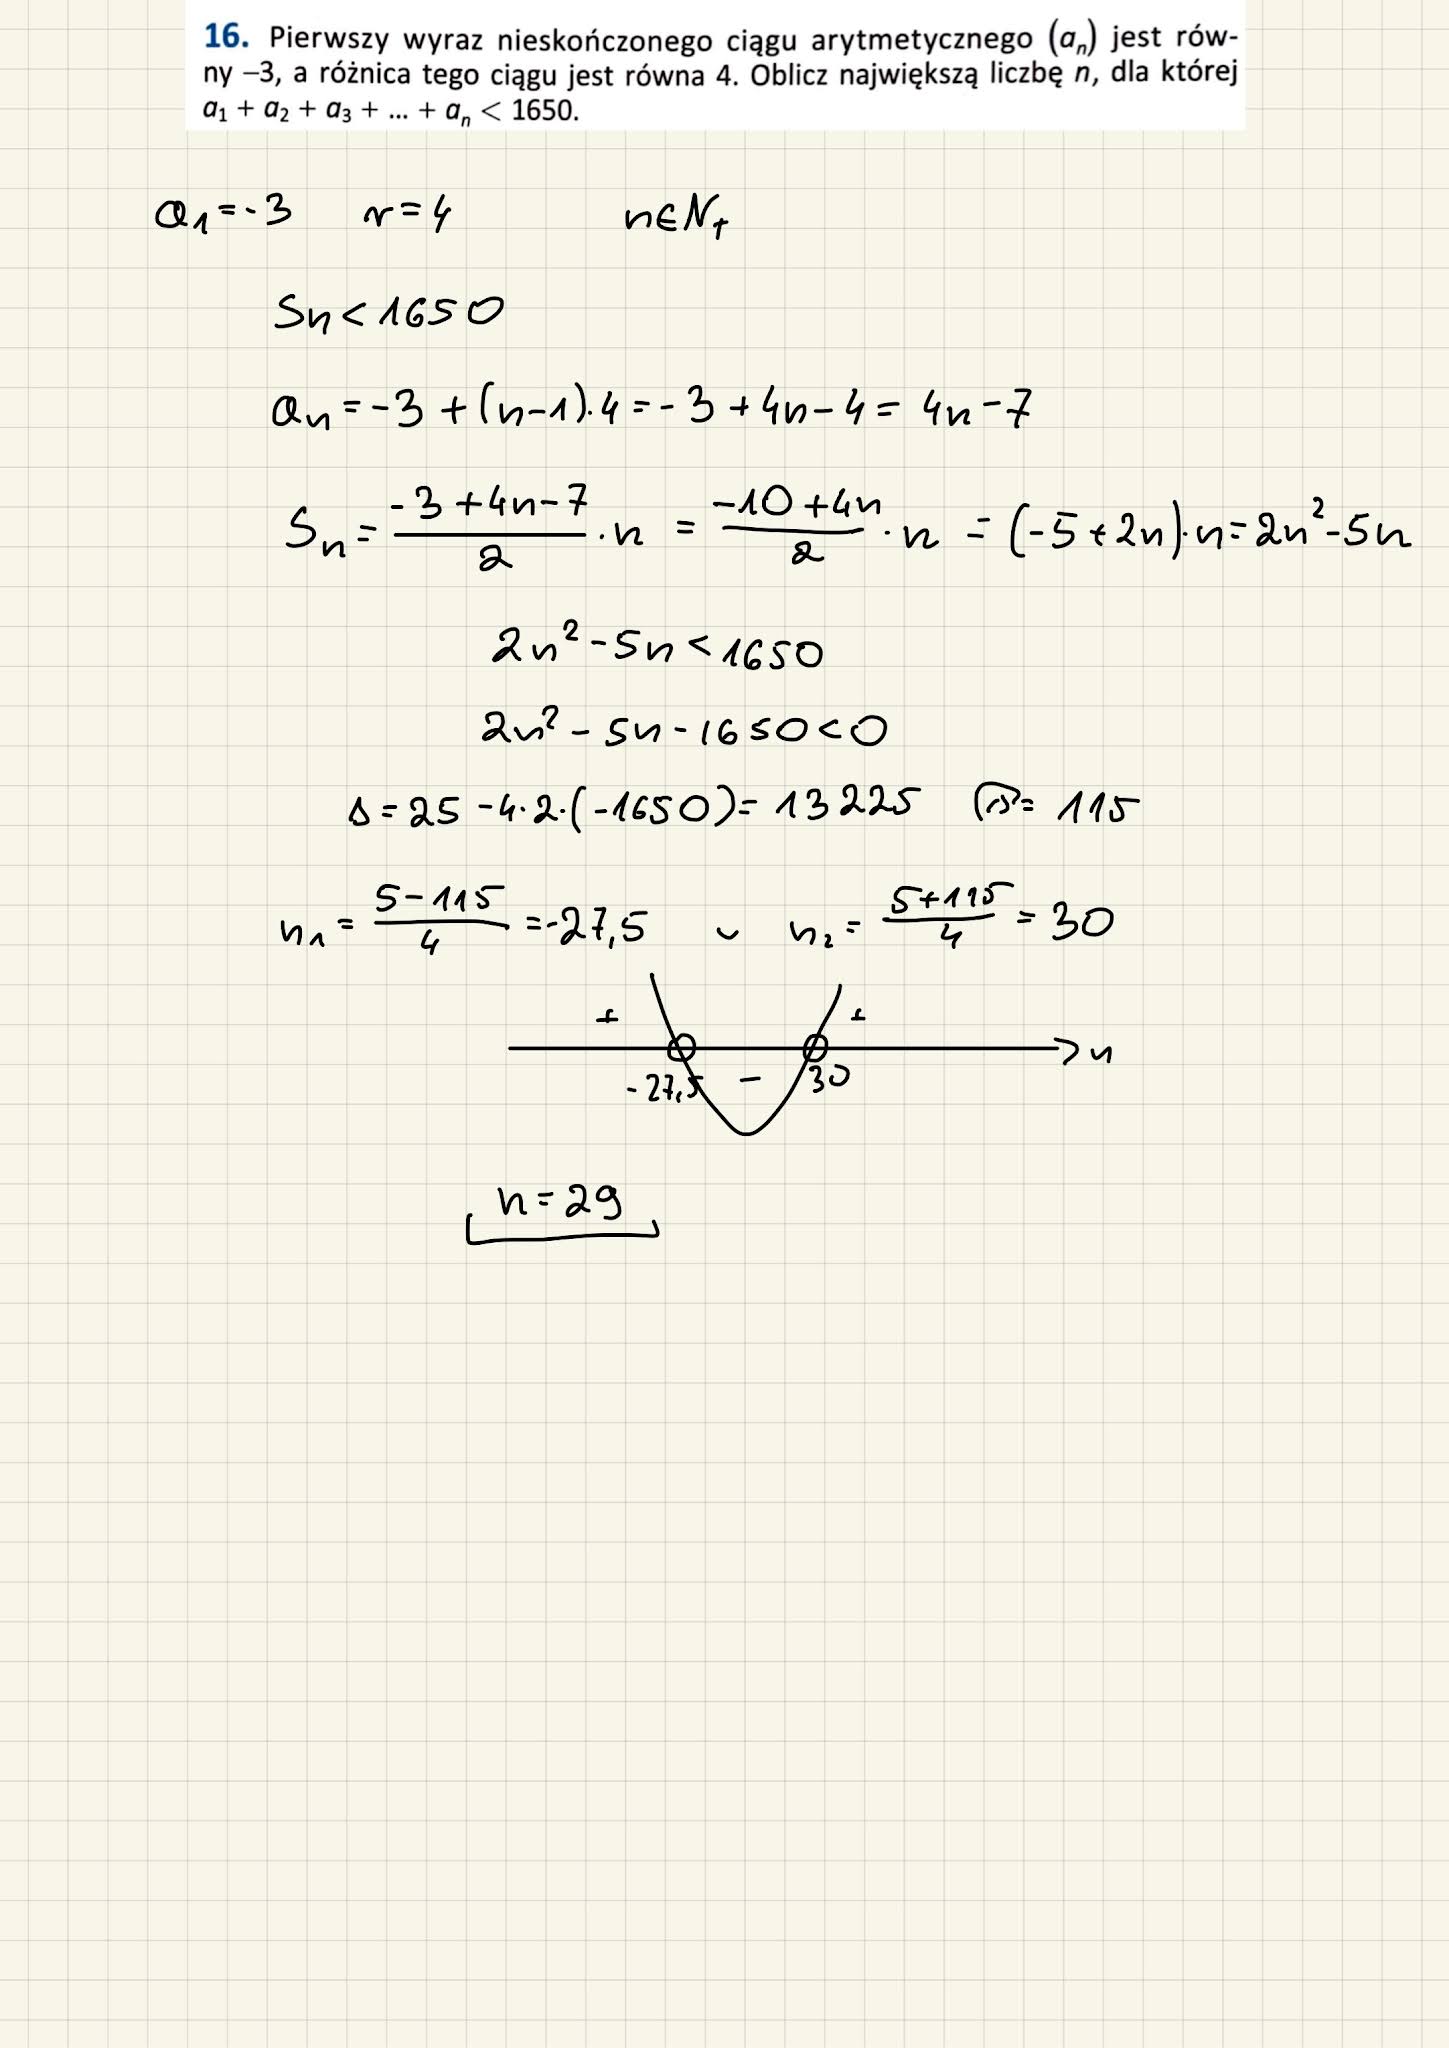 16. Pierwszy wyraz nieskończonego ciągu arytmetycznego (aₙ) jest rów-
ny –3, a różnica tego ciągu jest równa 4. Oblicz największą liczbę n, dla której
a₁ + a₂ + a₃ + ... + aₙ < 1650.
a₁ = -3 r = 4 n∈N₊
Sn < 1650
an = -3 + (n-1)·4 = -3 + 4n - 4 = 4n - 7
Sn = (-3+4n-7)/2 · n = (-10+4n)/2 · n = (-5+2n)·n = 2n² - 5n
2n² - 5n < 1650
2n² - 5n - 1650 < 0
Δ = 25 - 4·2·(-1650) = 13225 √Δ = 115
n₁ = (5-115)/4 = -27,5 ∪ n₂ = (5+115)/4 = 30
+ +
n
-27,5 - 30
n = 29